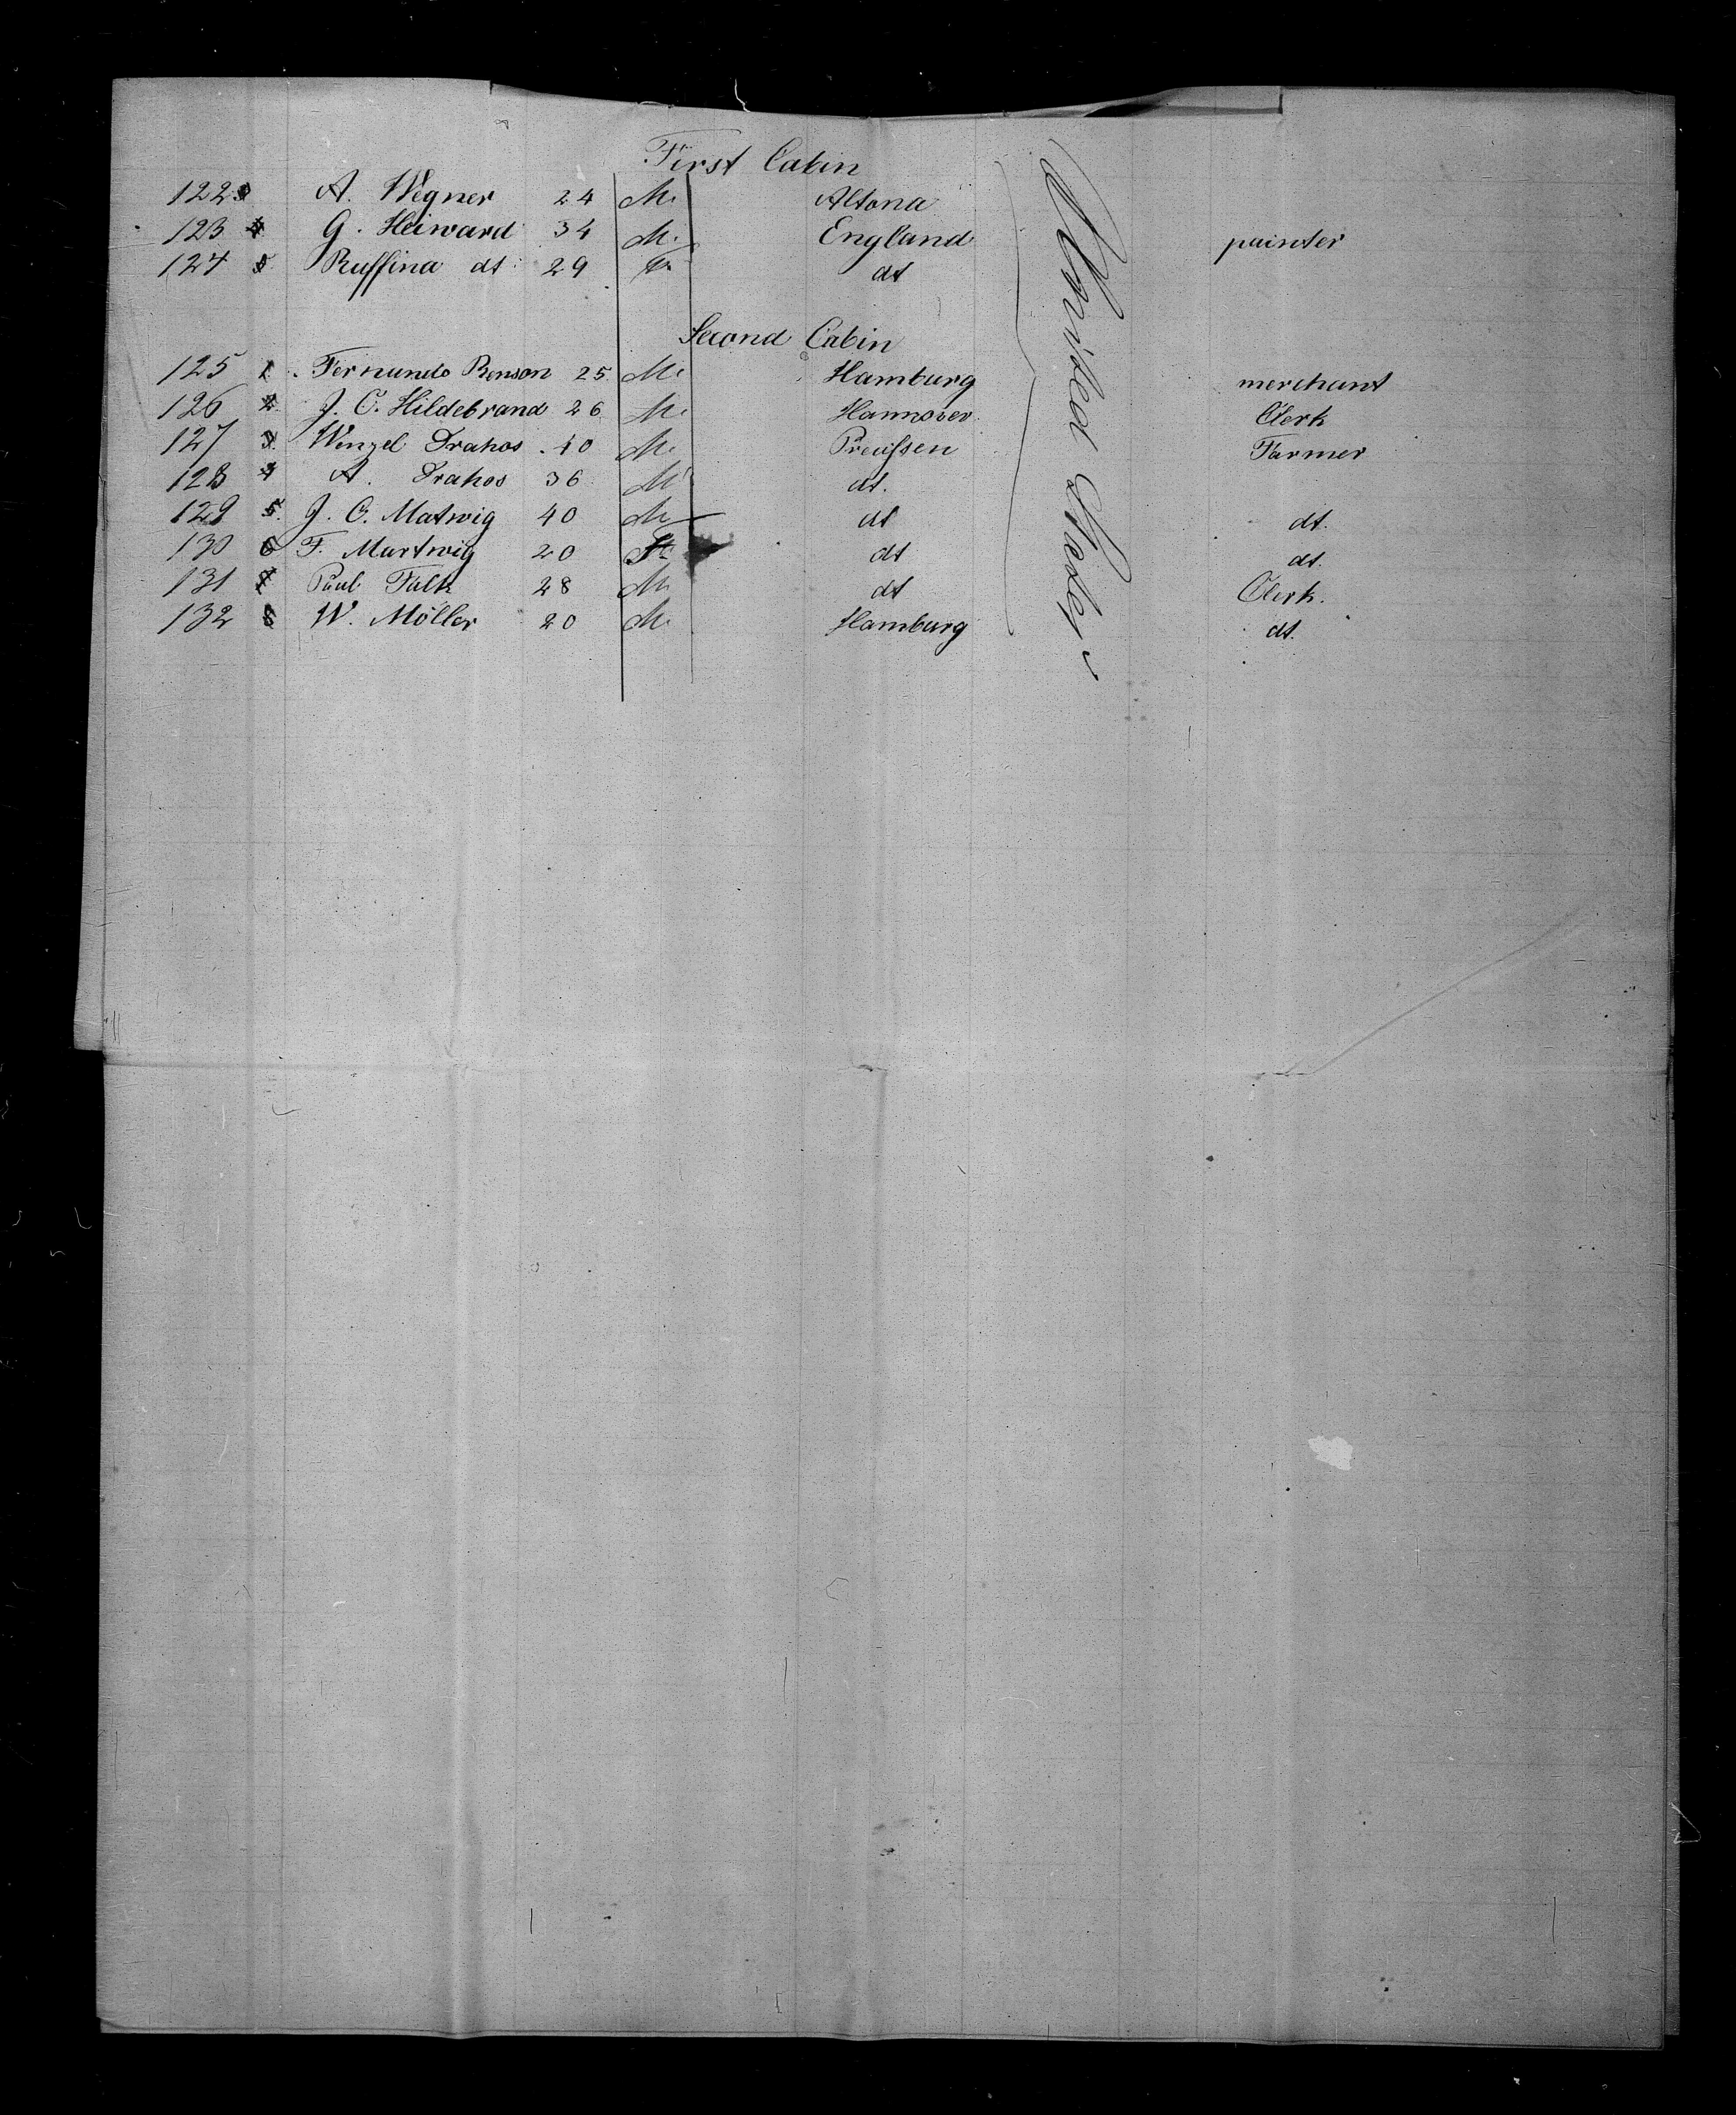 First Cabin
122 3 A. Wegner 24 M. Altona
123 4 G. Heiward 34 M. England painter
124 5 Ruffina dt 29 dt
Second Cabin
125 1. Fernando Benson 25. M. Hamburg merchant
126 2. J. C. Hildebrand 26 M. Hannover Clerk
127 3. Wenzel Drahos. 40 M. Preussen Farmer
128 4 A. Drahos 36 M dt.
129 5. J. C. Matwig 40 M dt dt.
130 6 F. Martwig 20 dt dt.
131 7 Paul Falk 28 M dt Clerk.
132 8 W. Möller 20 M. Hamburg dt.
United States